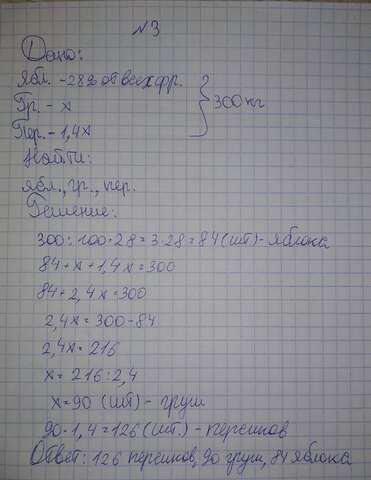 №3
Дано:
Ябл. - 28% от всех фр.
Гр. - x
Пер. - 1,4x
300 кг
Найти:
ябл., гр., пер.
Решение:
300 : 100 · 28 = 3 · 28 = 84 (шт) - яблока
84 + x + 1,4x = 300
84 + 2,4x = 300
2,4x = 300 - 84
2,4x = 216
x = 216 : 2,4
x = 90 (шт) - груш
90 · 1,4 = 126 (шт.) - персиков
Ответ: 126 персиков, 90 груш, 84 яблока